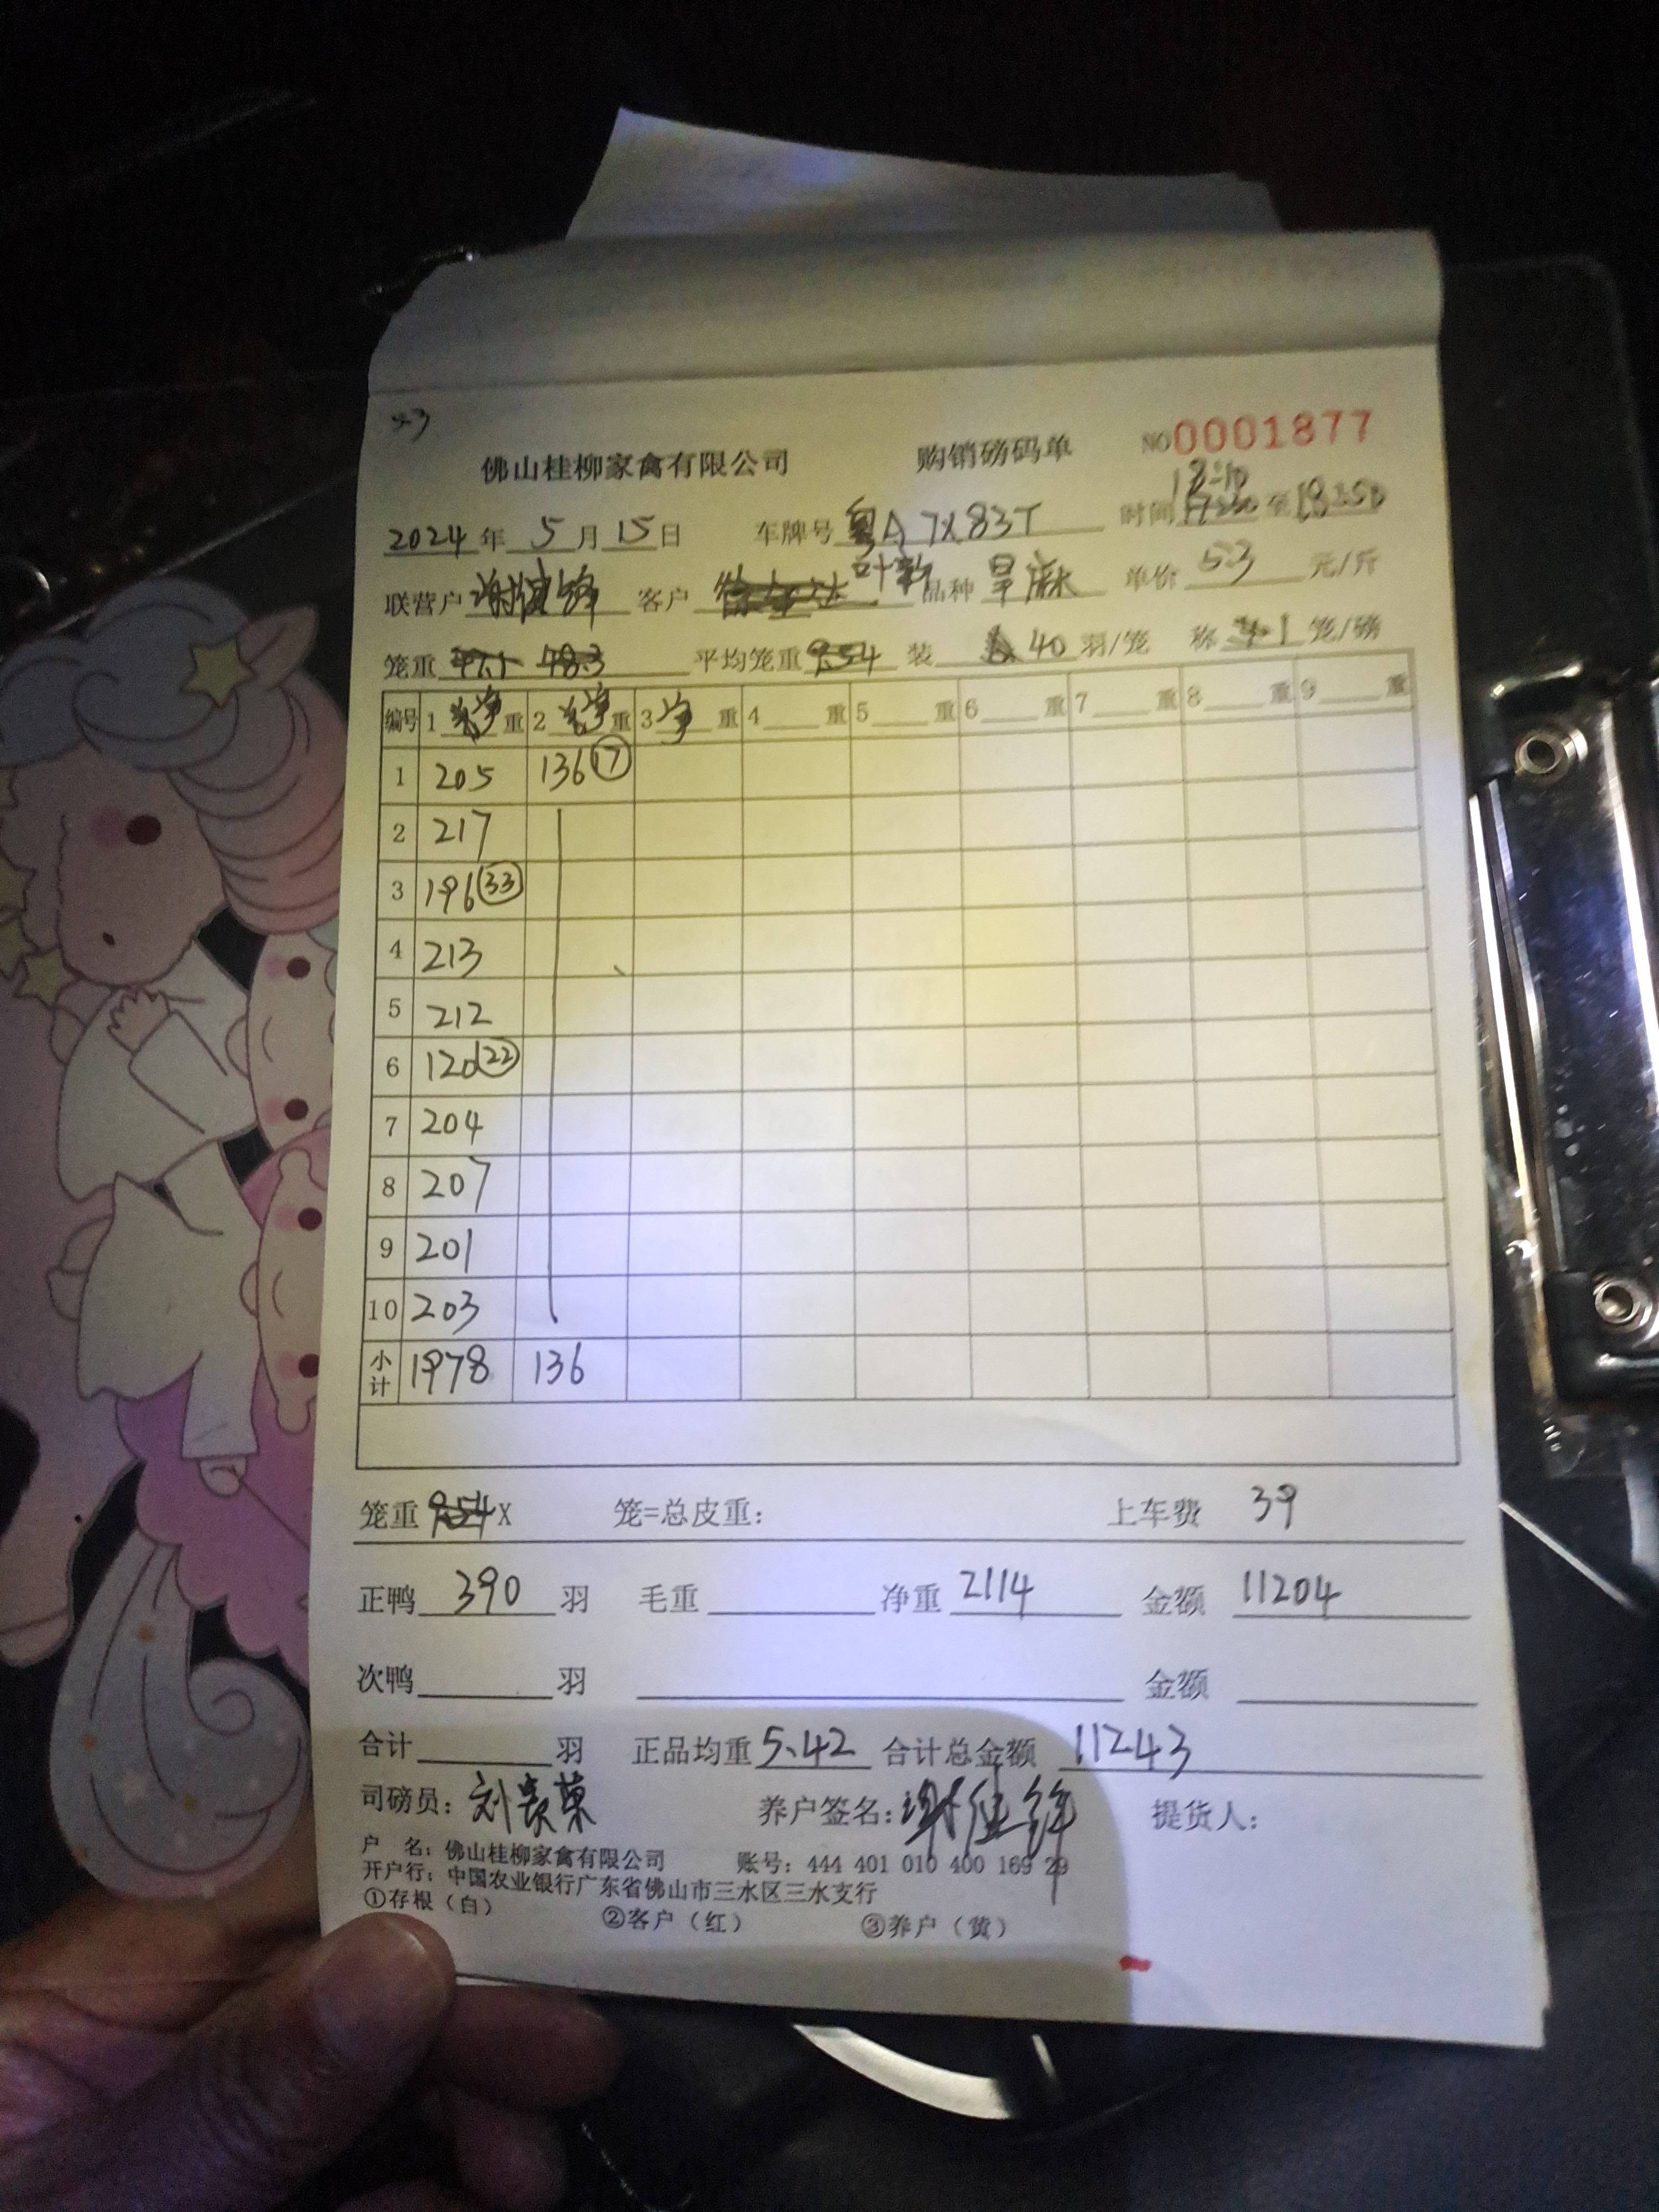 5.3
佛山桂柳家禽有限公司 购销磅码单 NO0001877
18:10
2024年5月15日 车牌号粤A7X83T 时间 至18:50
联营户 客户 叶新 品种旱麻 单价5.3元/斤
笼重 平均笼重 装40羽/笼 称1笼/磅
编号 1净重 2净重 3净重 4重 5重 6重 7重 8重 9重
1 205 136 17
2 217
3 196 33
4 213
5 212
6 120 22
7 204
8 207
9 201
10 203
小计 1978 136
笼重 X 笼=总皮重: 上车费 39
正鸭390羽 毛重 净重2114 金额11204
次鸭 羽 金额
合计 羽 正品均重5.42 合计总金额11243
司磅员: 养户签名: 提货人:
户 名: 佛山桂柳家禽有限公司 账号: 444 401 010 400 169 29
开户行: 中国农业银行广东省佛山市三水区三水支行
①存根（白） ②客户（红） ③养户（黄）